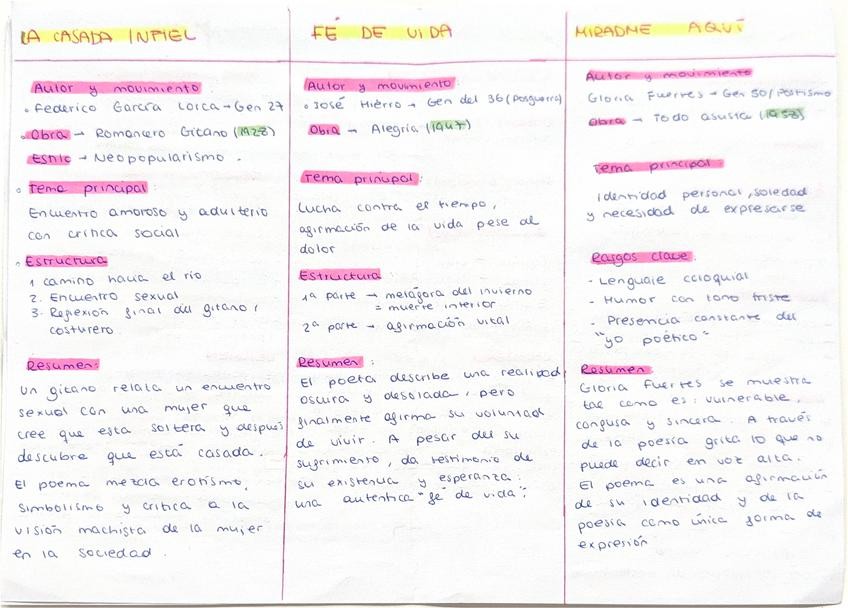 LA CASADA INFIEL
Autor y movimiento:
Federico García Lorca → Gen 27
Obra → Romancero Gitano (1928)
Estilo → Neopopularismo.
Tema principal:
Encuentro amoroso y adulterio
con crítica social
Estructura
1 camino hacia el río
2. Encuentro sexual
3- Reflexión final del gitano,
costurero.
Resumen:
Un gitano relata un encuentro
sexual con una mujer que
cree que esta soltera y después
descubre que está casada.
El poema mezcla erotismo,
simbolismo y crítica a la
visión machista de la mujer
en la sociedad.
FÉ DE VIDA
Autor y movimiento:
José Hierro → Gen del 36 (Posguerra)
Obra → Alegría (1947)
Tema principal:
Lucha contra el tiempo,
afirmación de la vida pese al
dolor
Estructura
1ª parte → metáfora del invierno
= muerte interior
2ª parte → afirmación vital
Resumen:
El poeta describe una realidad
oscura y desolada, pero
finalmente afirma su voluntad
de vivir. A pesar del su
sufrimiento, da testimonio de
su existencia y esperanza:
una autentica "fé de vida".
MIRADME AQUÍ
Autor y movimiento
Gloria Fuertes → Gen 50/Postismo
Obra → Todo asusta (1958)
Tema principal:
Identidad personal, soledad
y necesidad de expresarse
Rasgos clave:
- Lenguaje coloquial
- Humor con tono triste
- Presencia constante del
"yo poético"
Resumen:
Gloria Fuertes se muestra
tal como es: vulnerable,
confusa y sincera. A través
de la poesía grita lo que no
puede decir en voz alta.
El poema es una afirmación
de su identidad y de la
poesía como única forma de
expresión